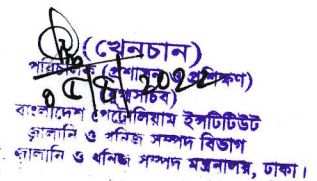 (খেনচান)
পরিচালক (প্রশাসন ও প্রশিক্ষণ)
(যুগ্মসচিব)
বাংলাদেশ পেট্রোলিয়াম ইন্সটিটিউট
জ্বালানি ও খনিজ সম্পদ বিভাগ
জ্বালানি ও খনিজ সম্পদ মন্ত্রনালয়, ঢাকা।